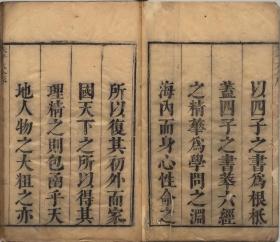 以四子之書為根柢
蓋四子之書萃六經
之精華為學問之淵
海內而身心性命之
所以復其初外而家
國天下之所以得其
理精之則包涵乎天
地人物之大粗之亦